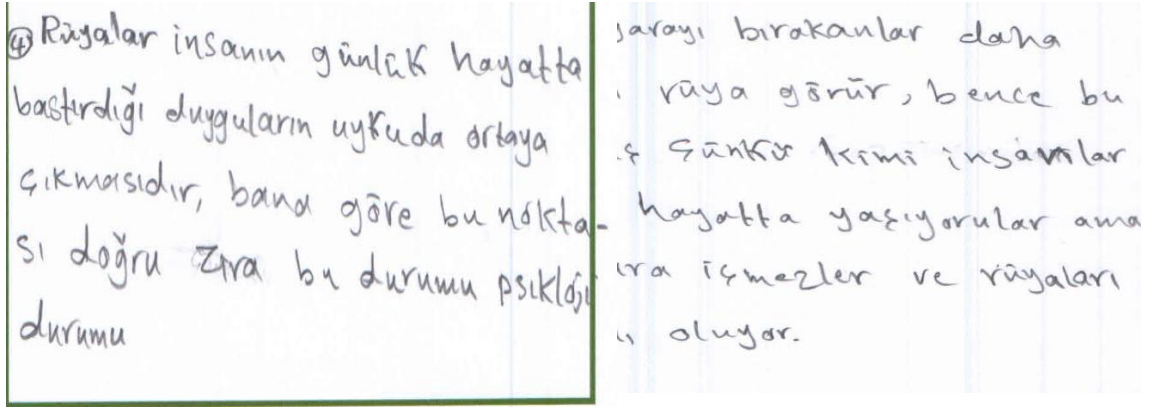 ④ Rüyalar insanın günlük hayatta
bastırdığı duyguların uykuda ortaya
çıkmasıdır, bana göre bu nokta-
sı doğru zira bu durumu psikloji
durumu
garayı bırakanlar daha
rüya görür, bence bu
ş çünkü kimi insanlar
hayatta yaşıyorular ama
ıra içmezler ve rüyaları
oluyor.